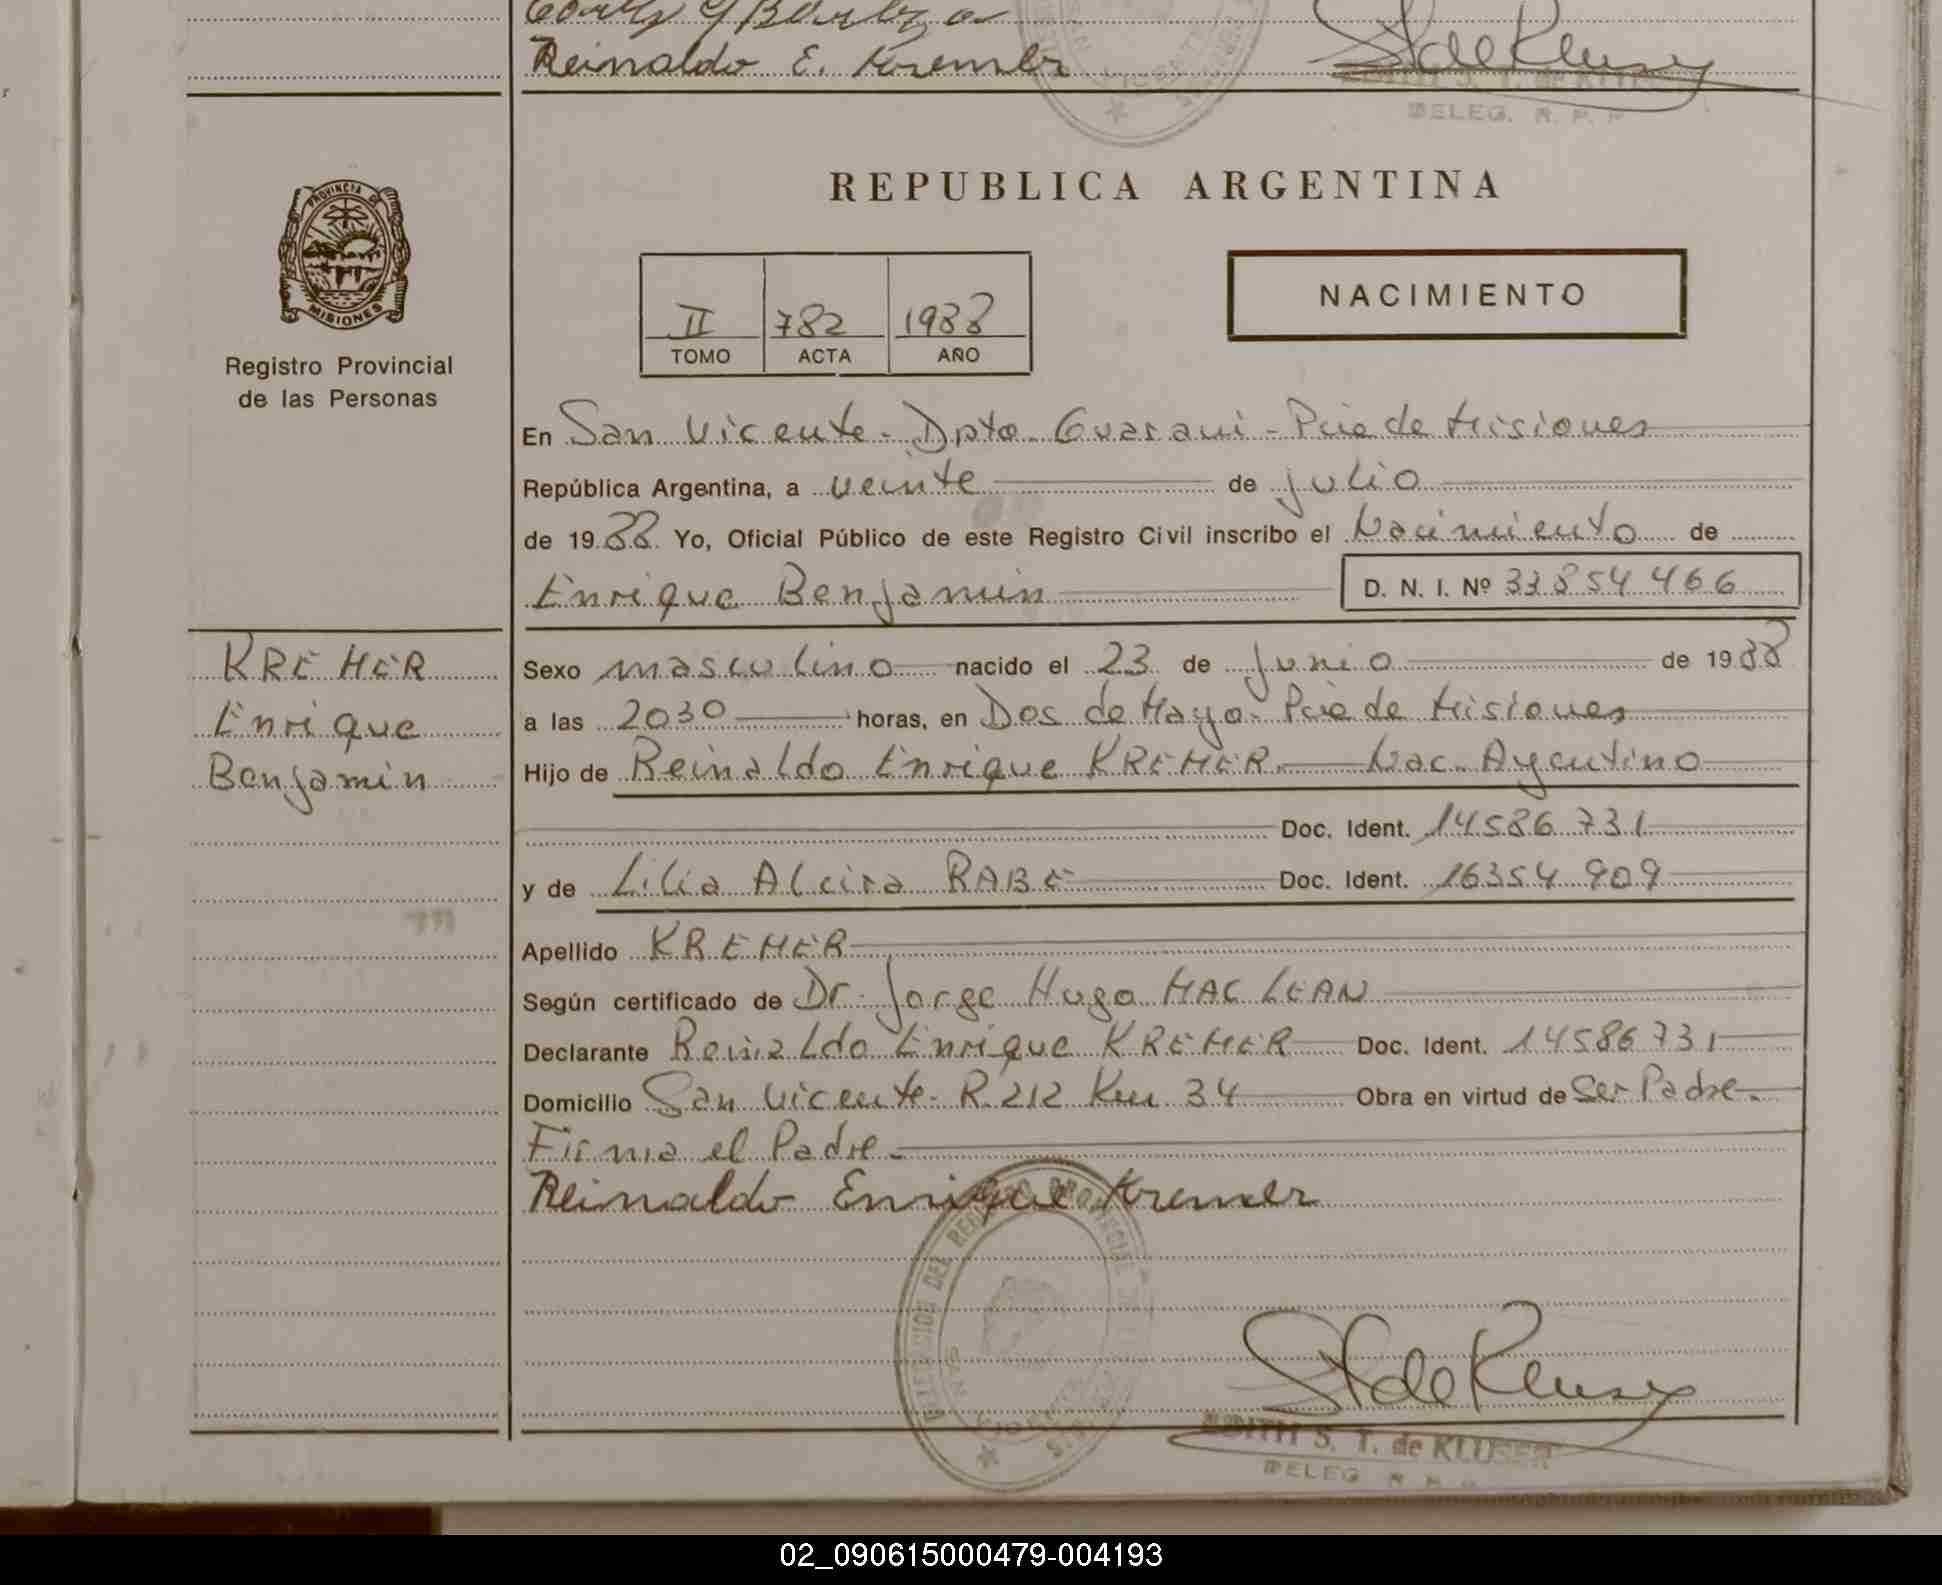 Reinaldo E. Kremer
DELEG. R. P. P
PROVINCIA DE
MISIONES
Registro Provincial
de las Personas
REPUBLICA ARGENTINA
II 782 1988
TOMO ACTA AÑO
NACIMIENTO
En San Vicente - Dpto. Guarani - Pcia de Misiones
República Argentina, a veinte de julio
de 1988 Yo, Oficial Público de este Registro Civil inscribo el Nacimiento de
Enrique Benjamin D. N. I. Nº 33854466
KREMER
Enrique
Benjamin
Sexo masculino nacido el 23 de Junio de 1988
a las 2030 horas, en Dos de Mayo - Pcia de Misiones
Hijo de Reinaldo Enrique KREMER. Nac. Argentino
Doc. Ident. 14586731
y de Lilia Alcira RABE Doc. Ident. 16354909
Apellido KREMER
Según certificado de Dr. Jorge Hugo MAC LEAN
Declarante Reinaldo Enrique KREMER Doc. Ident. 14586731
Domicilio San Vicente - R. 212 Km 34 Obra en virtud de Ser Padre.
Firma el Padre.
Reinaldo Enrique Kremer
DELEGACION DEL REGISTRO PROVINCIAL
SAN VICENTE
de Kluser
S. T. de KLUSER
DELEG. R. P. P.
02_090615000479-004193